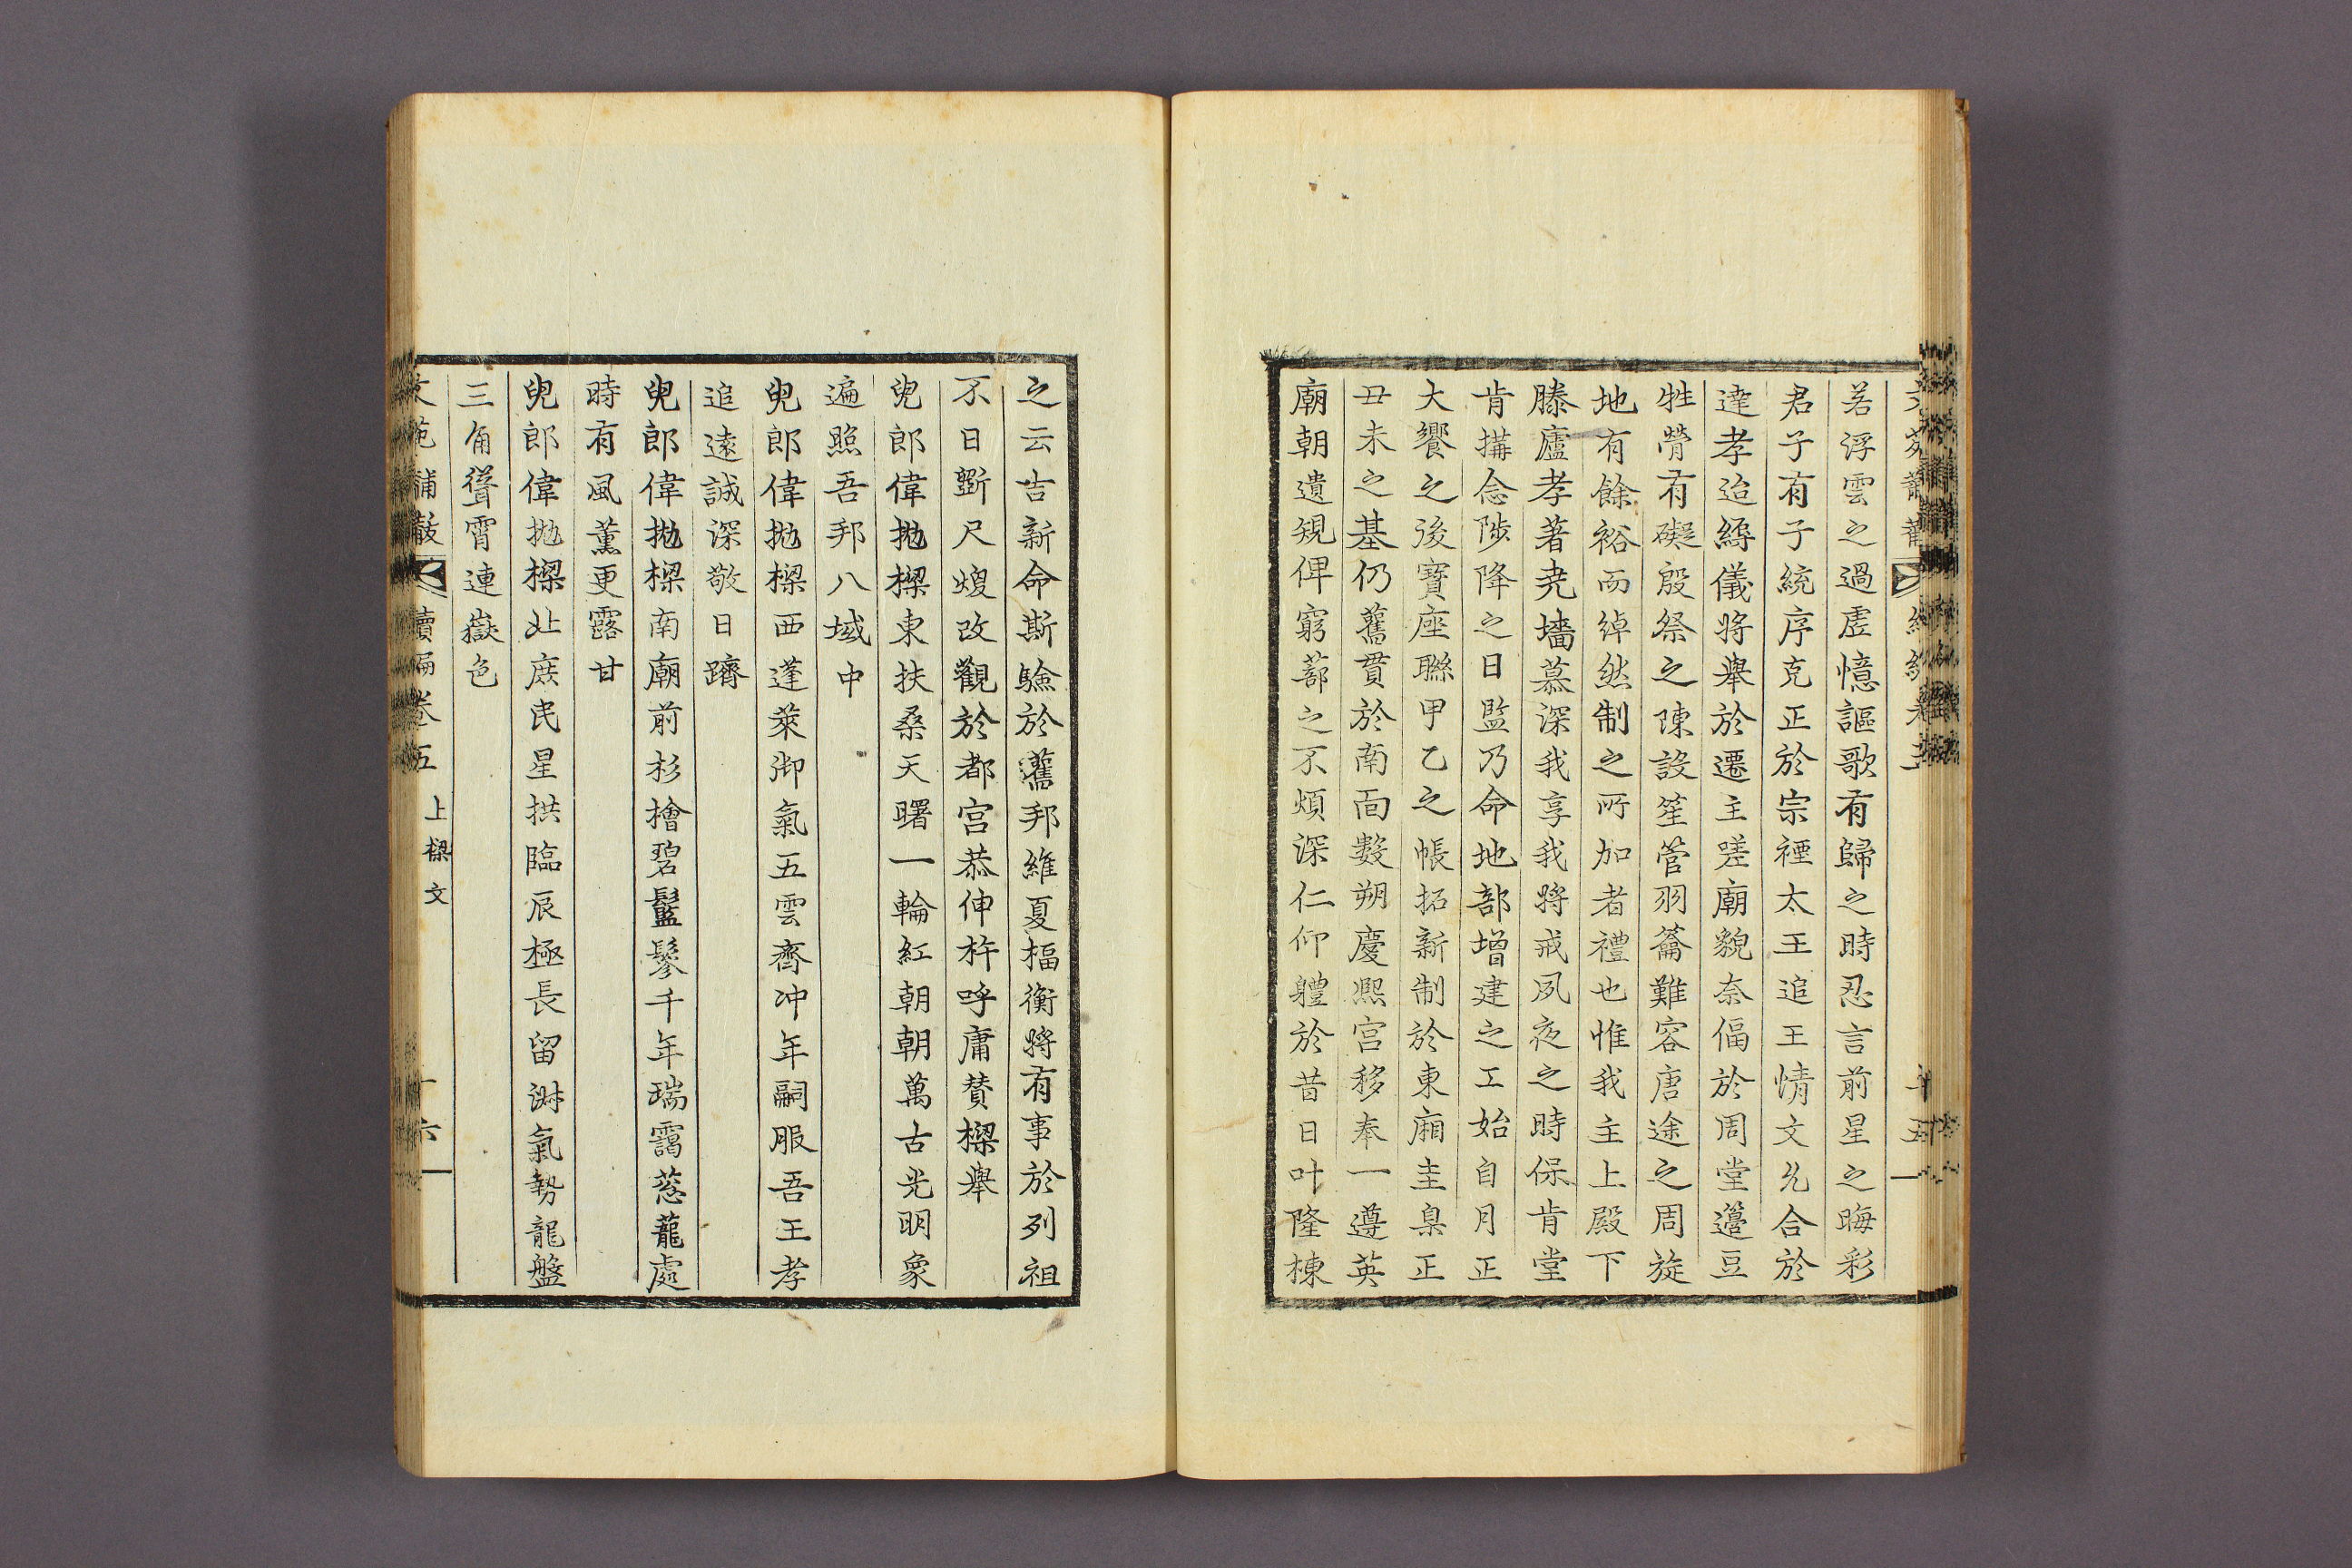 若浮雲之過虗憶謳歌有歸之時忍言前星之晦彩
君子有子統序克正於宗禋太王追王情文允合於
達孝迨緜儀將擧於遷主嗟廟貌奈偪於周堂邉豆
牲膋有礙殷祭之陳設笙管羽籥難容唐途之周旋
地有餘裕而綽然制之所加者禮也惟我主上殿下
滕廬孝著尭墻慕深我享我將戒夙夜之時保肯堂
肯搆念陟降之日監乃命地部增建之工始自月正
大饗之後寳座聯甲乙之帳拓新制於東廂圭臬正
丑未之基仍舊貫於南面數朔慶熙宫移奉一遵英
廟朝遺䂓俾窮蔀之不煩深仁仰軆於昔日叶隆棟
之云吉新命斯驗於舊邦維夏楅衡將有事於列祖
不日斲尺煥改觀於都宫恭伸杵呼庸賛樑擧
兒郎偉抛樑東扶桑天曙一輪紅朝朝萬古光明象
遍照吾邦八域中
兒郎偉抛樑西蓬萊御氣五雲齊冲年嗣服吾王孝
追遠誠深敬日躋
兒郎偉抛樑南廟前杉檜碧鬖千年瑞靄葱蘢處
時有風薰更露甘
兒郎偉抛樑北庶民星拱臨辰極長留淑氣勢龍盤
三角聳霄連嶽色
苑黼黻 續編卷五 上樑文 十六